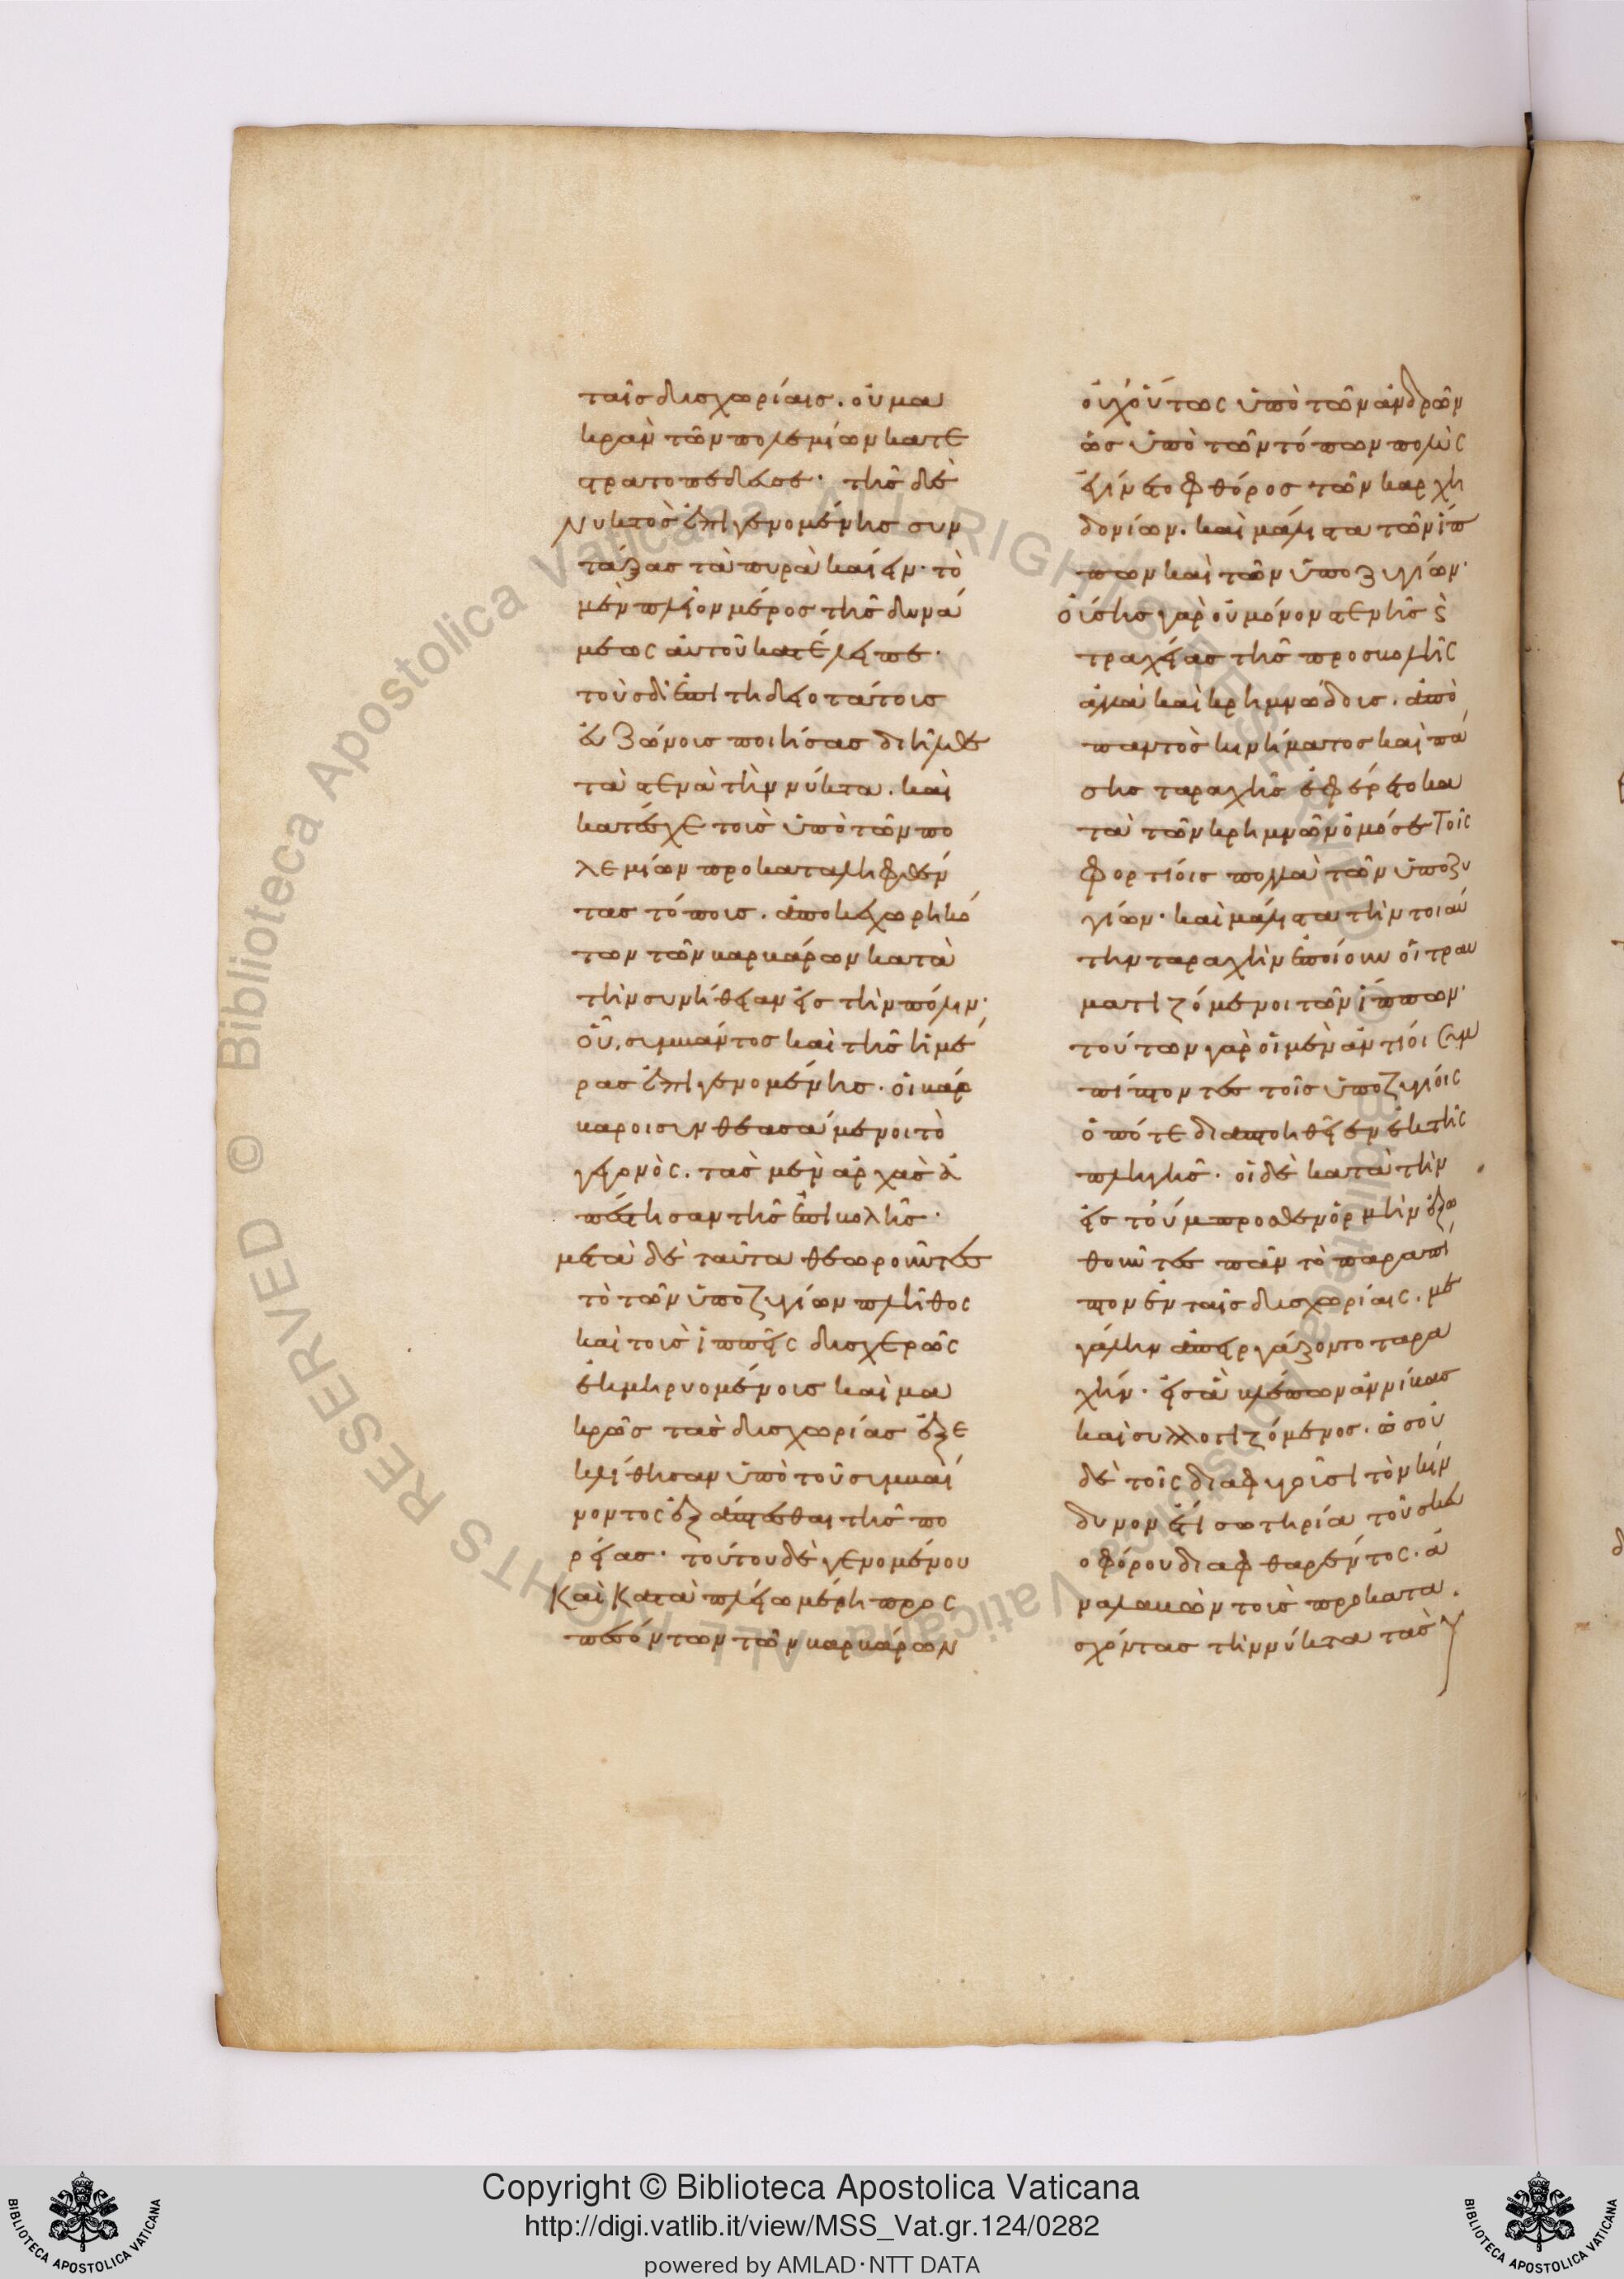 ταῖς δυσχωρίαις. οὐ μα
κρὰν τῶν πολεμίων κατε
στρατοπέδευσε· τῆς δὲ
νυκτὸς ἐπιγενομένης συν
τάξας τὰ πυρὰ καίειν· τὸ
μὲν πλεῖον μέρος τῆς δυνά
μεως αὐτοῦ κατέλειπε·
τοὺς δ' ἐπιτηδειοτάτους
εὐζώνους ποιήσας διῆλθε
τὰ στενὰ τὴν νύκτα. καὶ
κατέσχε τοὺς ὑπὸ τῶν πο
λεμίων προκαταληφθέν
τας τόπους. ἀποκεχωρηκό
των τῶν βαρβάρων κατὰ
τὴν συνήθειαν εἰς τὴν πόλιν·
οὗ, συμβάντος καὶ τῆς ἡμέ
ρας ἐπιγενομένης. οἱ βάρ
βαροι συνθεασάμενοι τὸ
γεγονὸς. τὰς μὲν ἀρχὰς ἀ
πέστησαν τῆς ἐπιβολῆς·
μετὰ δὲ ταῦτα θεωροῦντες
τὸ τῶν ὑποζυγίων πλῆθος
καὶ τοὺς ἱππεῖς δυσχερῶς
ἐκμηρυομένους καὶ μα
κρῶς τὰς δυσχωρίας ἐξε
κλήθησαν ὑπὸ τοῦ συμβαί
νοντος ἐξάπτεσθαι τῆς πο
ρείας· τούτου δὲ γενομένου
καὶ κατὰ πλείω μέρη προς
πεσόντων τῶν βαρβάρων
οὐχ οὕτως ὑπὸ τῶν ἀνδρῶν
ὡς ὑπὸ τῶν τόπων πολὺς
ἐγίνετο φθόρος τῶν καρχη
δονίων. καὶ μάλιστα τῶν ἵπ
πων καὶ τῶν ὑποζυγίων·
οὔσης γὰρ οὐ μόνον στενῆς καὶ
τραχείας τῆς προσβολῆς
ἀλλὰ καὶ κρημνώδους. ἀπὸ
παντὸς κινήματος καὶ πά
σης ταραχῆς ἐφέρετο κα
τὰ τῶν κρημνῶν ὁμόσε τοῖς
φορτίοις πολλὰ τῶν ὑποζυ
γίων· καὶ μάλιστα τὴν τοιαύ
την ταραχὴν ἐποίουν οἱ τραυ
ματιζόμενοι τῶν ἵππων·
τούτων γὰρ οἱ μὲν ἀντίοι συμ
πίπτοντες τοῖς ὑποζυγίοις
ὁπότε διαπτοηθεῖεν ἐκ τῆς
πληγῆς· οἱ δὲ κατὰ τὴν
εἰς τοὔμπροσθεν ὁρμὴν ἐξω
θοῦντες πᾶν τὸ παραπί
πτον ἐν ταῖς δυσχωρίαις. με
γάλην ἀπειργάζοντο ταρα
χήν· εἰς ἃ βλέπων ἀννίβας
καὶ συλλογιζόμενος. ὡς οὐ
δὲ τοῖς διαφυγοῦσι τὸν κίν
δυνον ἐστὶ σωτηρία τοῦ σκευ
οφόρου διαφθαρέντος. ἀ
ναλαβὼν τοὺς προκατα.
σχόντας τὴν νύκτα τὰς